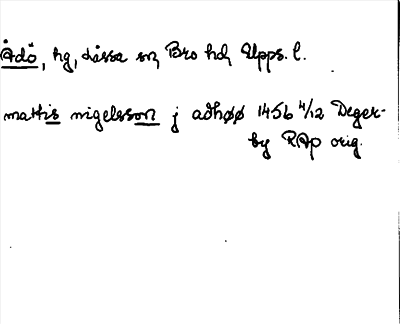 Ådö, hg, Låssa sn, Bro hd, Upps. l.
mattis nigelsson j adhøø 1456 4/12 Deger-
by RAp orig.